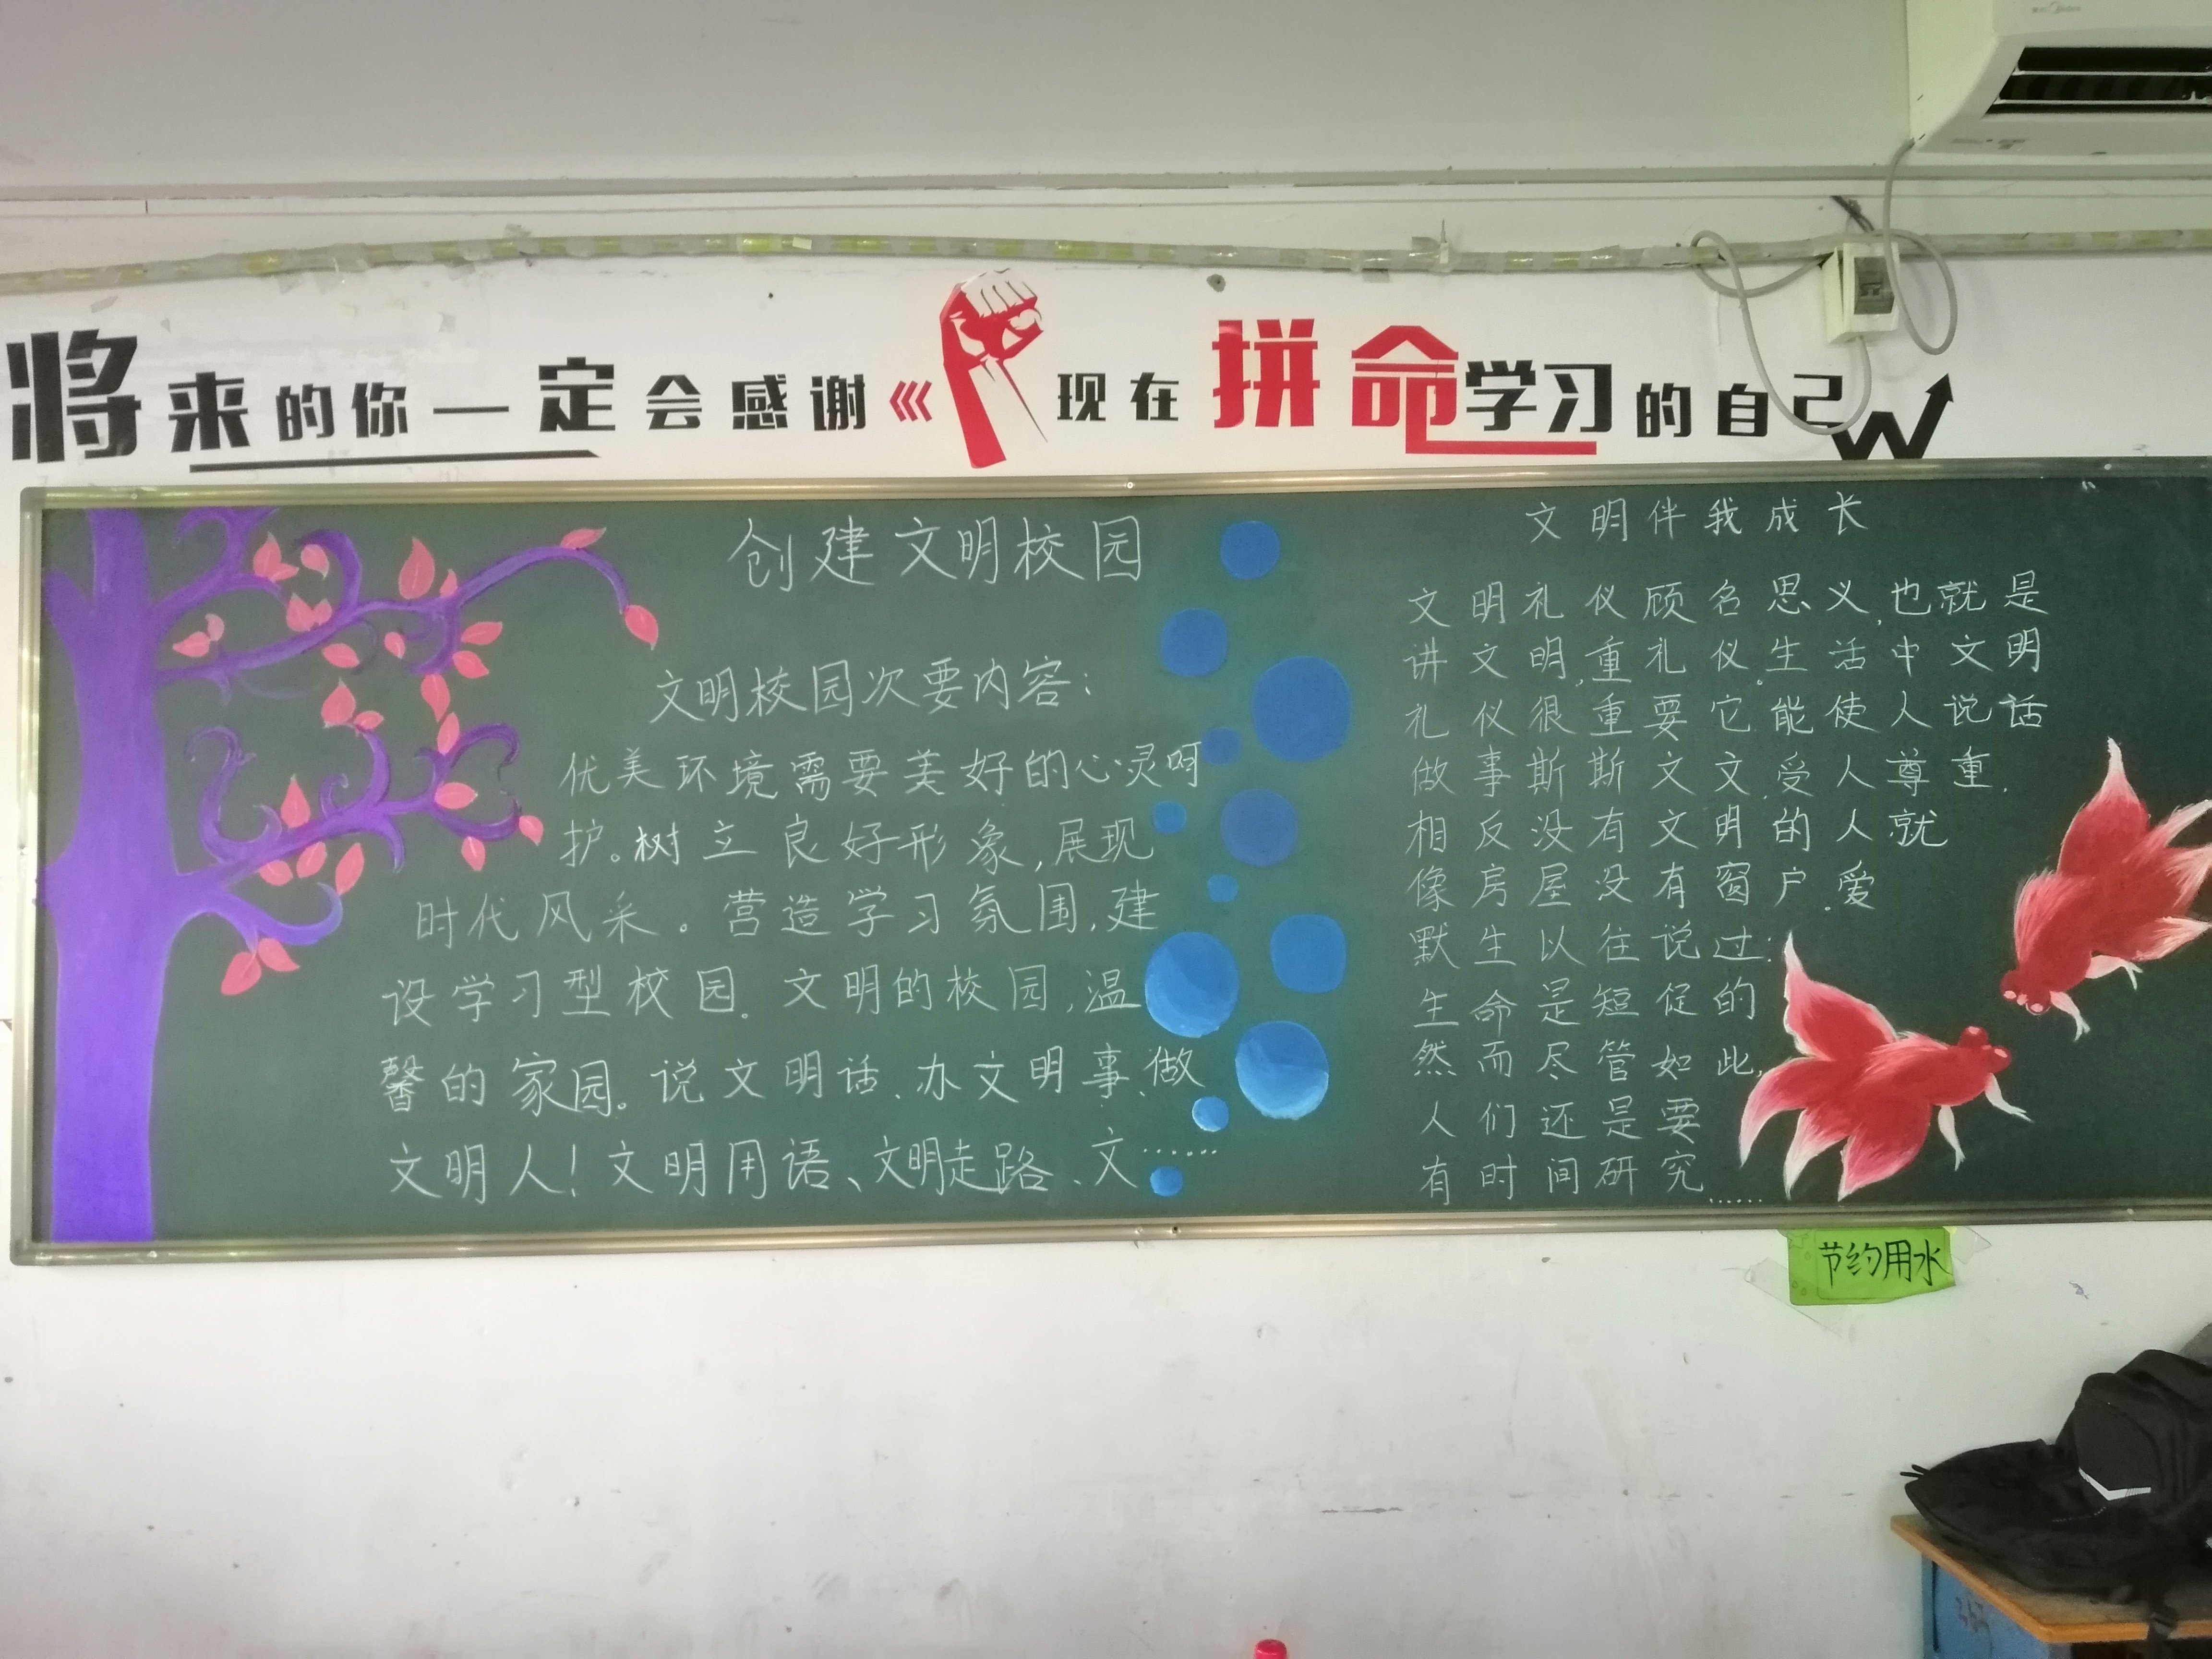 将来的你一定会感谢《现在拼命学习的自己
创建文明校园
文明校园次要内容：
优美环境需要美好的心灵呵
护。树立良好形象,展现
时代风采。营造学习氛围,建
设学习型校园。文明的校园,温
馨的家园。说文明话、办文明事、做
文明人!文明用语、文明走路、文……
文明伴我成长
文明礼仪顾名思义,也就是
讲文明,重礼仪。生活中文明
礼仪很重要它能使人说话
做事斯斯文文,受人尊重.
相反没有文明的人就
像房屋没有窗户.爱
默生以往说过:
生命是短促的
然而尽管如此,
人们还是要
有时间研究……
节约用水